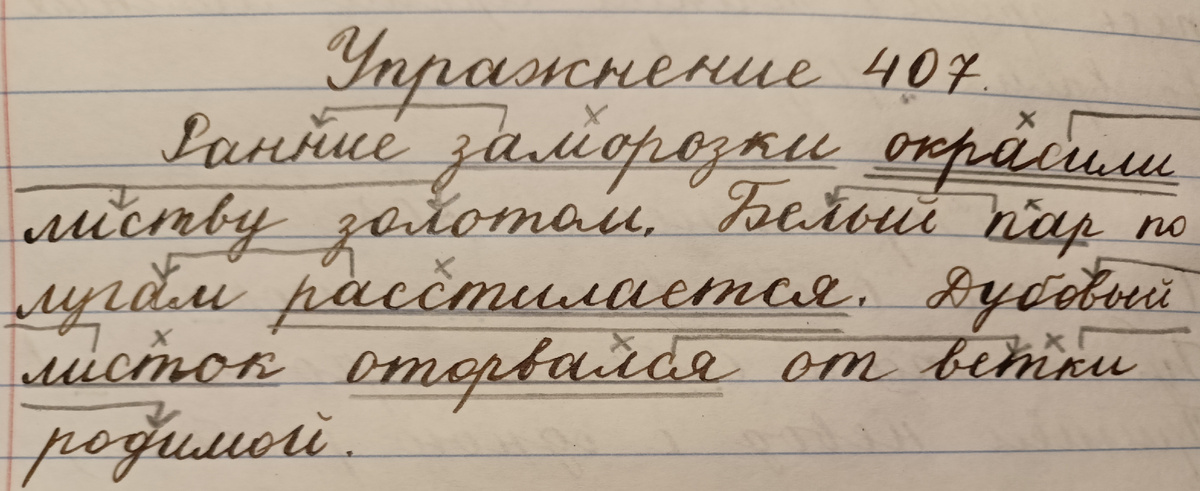 Упражнение 407.
Ранние заморозки окрасили
листву золотом. Белый пар по
лугам расстилается. Дубовый
листок оторвался от ветки
родимой.